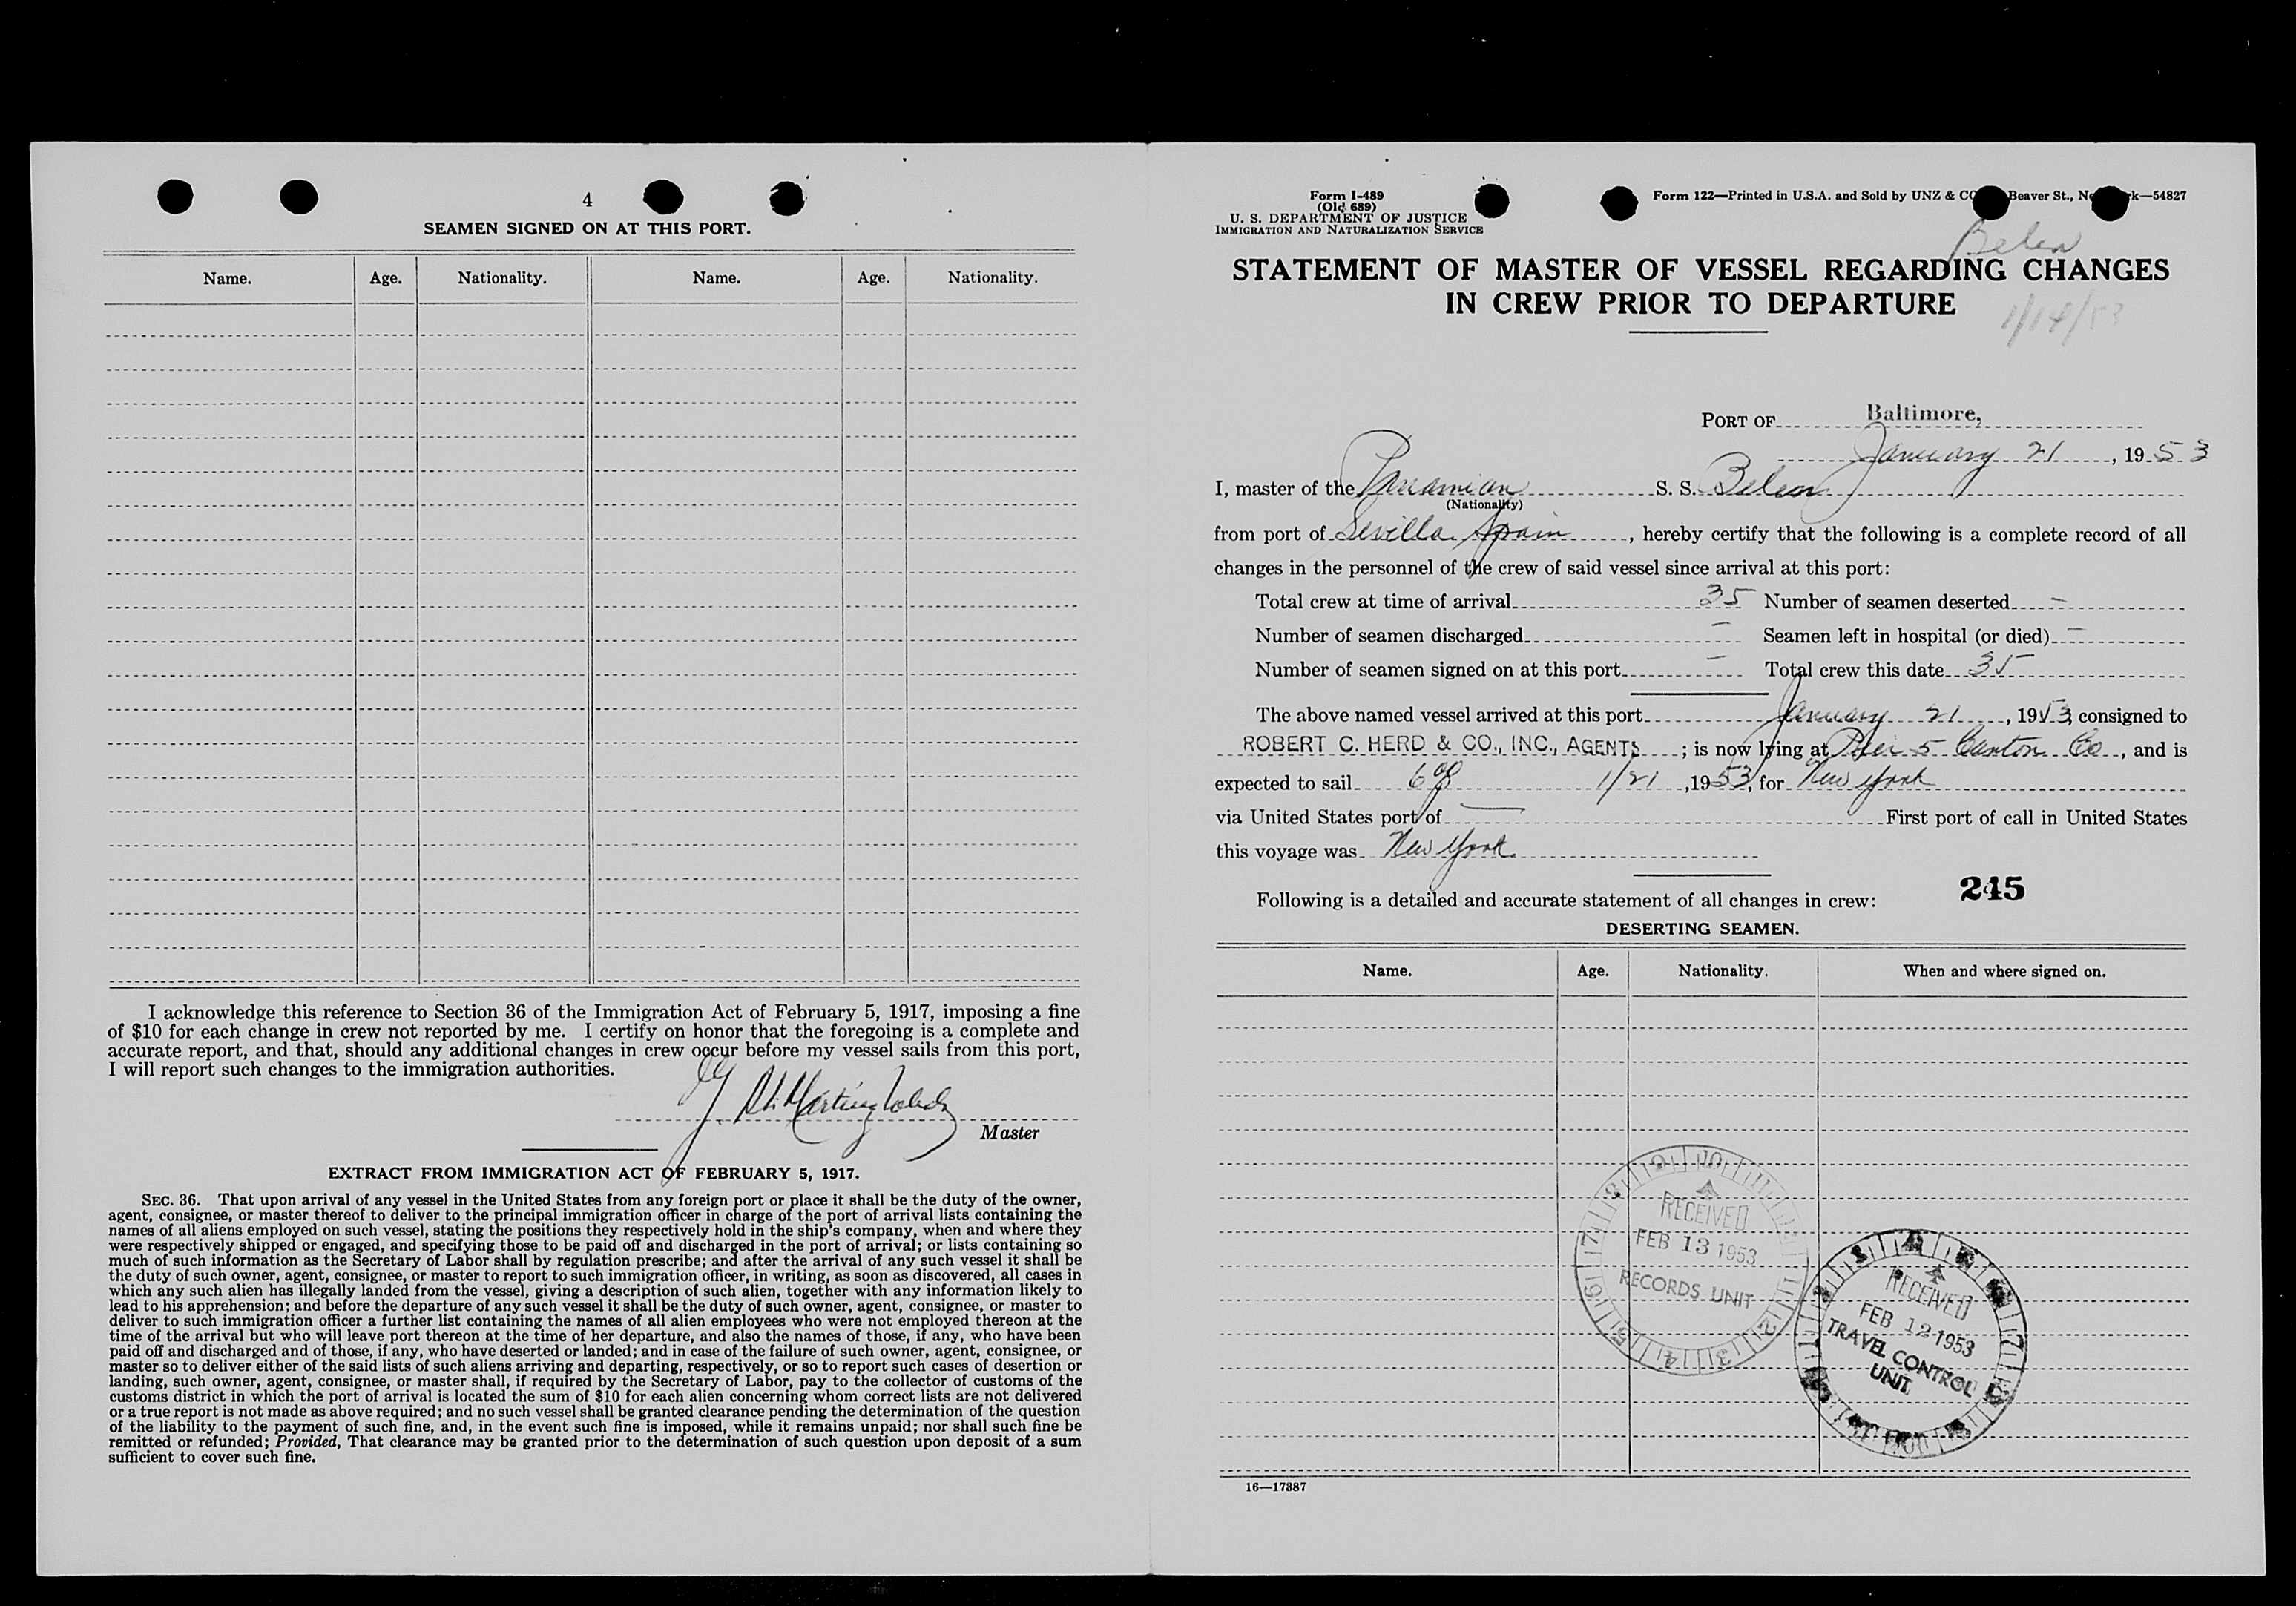 4
SEAMEN SIGNED ON AT THIS PORT.
Name. Age. Nationality. Name. Age. Nationality.
I acknowledge this reference to Section 36 of the Immigration Act of February 5, 1917, imposing a fine
of $10 for each change in crew not reported by me. I certify on honor that the foregoing is a complete and
accurate report, and that, should any additional changes in crew occur before my vessel sails from this port,
I will report such changes to the immigration authorities.
Master
EXTRACT FROM IMMIGRATION ACT OF FEBRUARY 5, 1917.
SEC. 36. That upon arrival of any vessel in the United States from any foreign port or place it shall be the duty of the owner,
agent, consignee, or master thereof to deliver to the principal immigration officer in charge of the port of arrival lists containing the
names of all aliens employed on such vessel, stating the positions they respectively hold in the ship's company, when and where they
were respectively shipped or engaged, and specifying those to be paid off and discharged in the port of arrival; or lists containing so
much of such information as the Secretary of Labor shall by regulation prescribe; and after the arrival of any such vessel it shall be
the duty of such owner, agent, consignee, or master to report to such immigration officer, in writing, as soon as discovered, all cases in
which any such alien has illegally landed from the vessel, giving a description of such alien, together with any information likely to
lead to his apprehension; and before the departure of any such vessel it shall be the duty of such owner, agent, consignee, or master to
deliver to such immigration officer a further list containing the names of all alien employees who were not employed thereon at the
time of the arrival but who will leave port thereon at the time of her departure, and also the names of those, if any, who have been
paid off and discharged and of those, if any, who have deserted or landed; and in case of the failure of such owner, agent, consignee, or
master so to deliver either of the said lists of such aliens arriving and departing, respectively, or so to report such cases of desertion or
landing, such owner, agent, consignee, or master shall, if required by the Secretary of Labor, pay to the collector of customs of the
customs district in which the port of arrival is located the sum of $10 for each alien concerning whom correct lists are not delivered
or a true report is not made as above required; and no such vessel shall be granted clearance pending the determination of the question
of the liability to the payment of such fine, and, in the event such fine is imposed, while it remains unpaid; nor shall such fine be
remitted or refunded; Provided, That clearance may be granted prior to the determination of such question upon deposit of a sum
sufficient to cover such fine.
Form I-489
(Old 689)
U. S. DEPARTMENT OF JUSTICE
IMMIGRATION AND NATURALIZATION SERVICE
Form 122—Printed in U.S.A. and Sold by UNZ & CO Beaver St., Ne k—54827
Belen
STATEMENT OF MASTER OF VESSEL REGARDING CHANGES
IN CREW PRIOR TO DEPARTURE
1/14/53
PORT OF Baltimore,
January 21, 1953
I, master of the Panamian S. S. Belen
(Nationality)
from port of Sevilla Spain, hereby certify that the following is a complete record of all
changes in the personnel of the crew of said vessel since arrival at this port:
Total crew at time of arrival 35 Number of seamen deserted —
Number of seamen discharged — Seamen left in hospital (or died) —
Number of seamen signed on at this port — Total crew this date 35
The above named vessel arrived at this port January 21, 1953 consigned to
ROBERT C. HERD & CO., INC., AGENTS; is now lying at Pier 5 Canton Co, and is
expected to sail 1/21, 1953, for New York
via United States port of — First port of call in United States
this voyage was New York
245
Following is a detailed and accurate statement of all changes in crew:
DESERTING SEAMEN.
Name. Age. Nationality. When and where signed on.
RECEIVED
FEB 13 1953
RECORDS UNIT
RECEIVED
FEB 12 1953
TRAVEL CONTROL
UNIT
16—17387